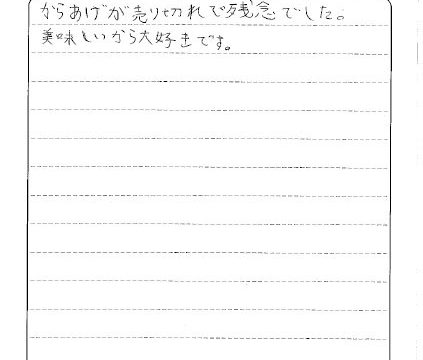 からあげが売り切れで残念でした。
美味しいから大好きです。